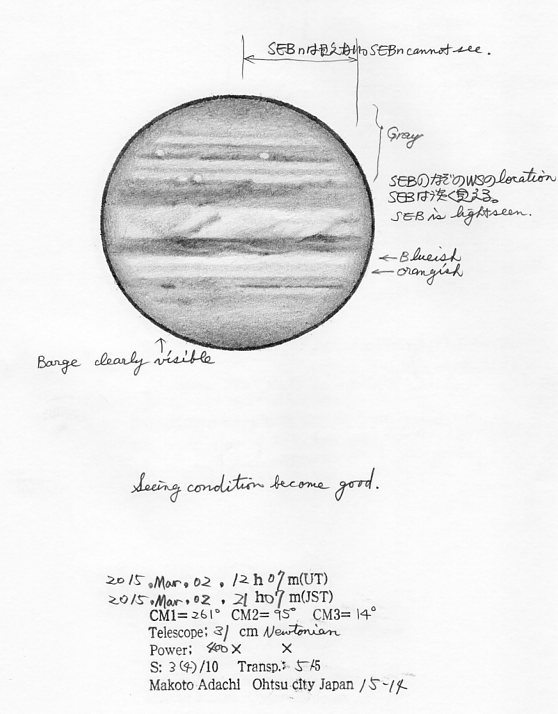 SEBnは見えない SEBn cannot see.
Gray
SEBのなぞのWSのlocation
SEBは淡く見える。
SEB is light seen.
←Blueish
←orangish
↑
Barge clearly visible
Seeing condition become good.
2015.Mar.02. 12h07m(UT)
2015.Mar.02. 21h07m(JST)
CM1=261° CM2=95° CM3=14°
Telescope; 31 cm Newtonian
Power; 400× ×
S: 3(4)/10 Transp.: 5/5
Makoto Adachi Ohtsu city Japan 15-14